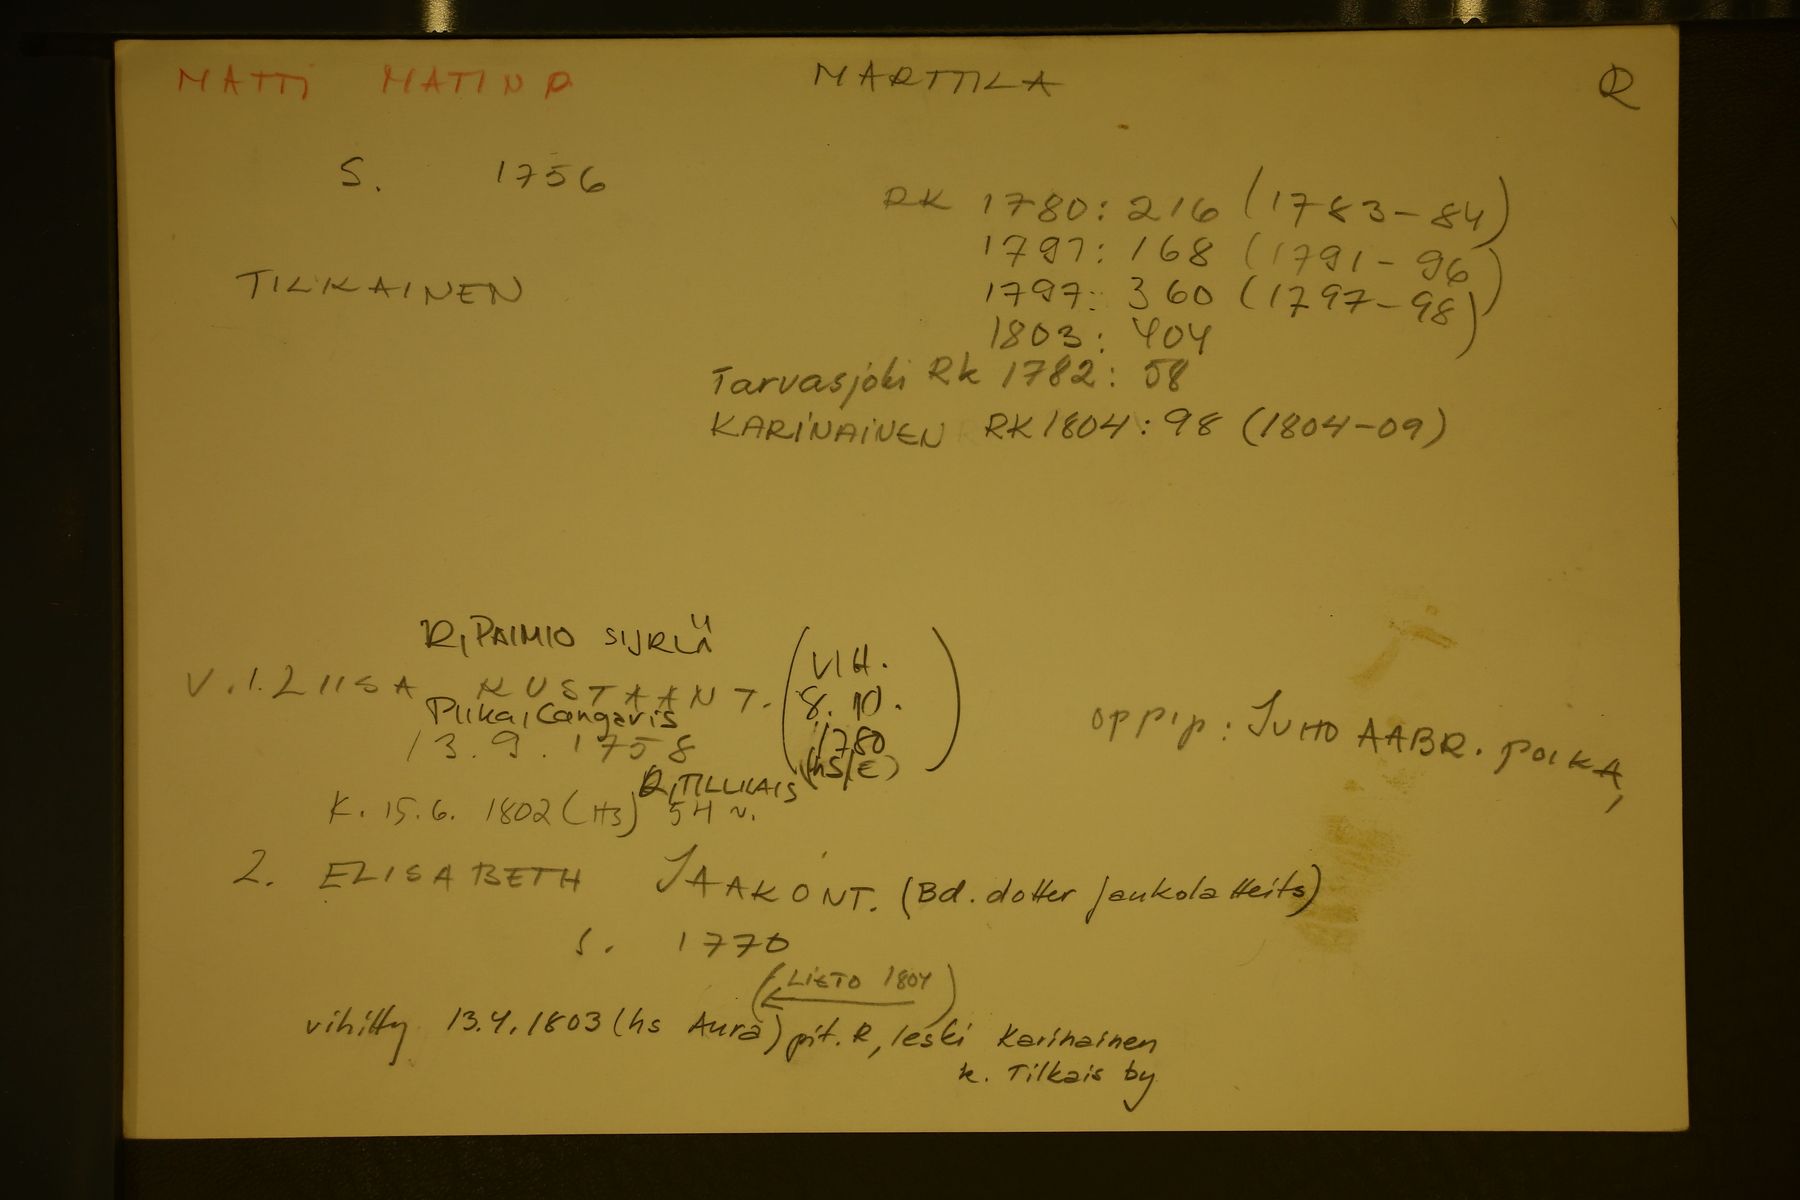 MATTI MATINP MARTTILA R
S. 1756
RK 1780: 216 (1783-84)
1791: 168 (1791-96)
TILKAINEN
1797: 360 (1797-98)
1803: 404
Tarvasjoki Rk 1782: 58
KARINAINEN RK 1804: 98 (1804-09)
R, PAIMIO
V. 1. LIISA KUSTAANT. (VIH. 8. 10. 1780 (hS/E))
Piika, Cangaris
13. 9. 1758
oppip: JUHO AABR. POIKA,
R, TILLKAIS
K. 15. 6. 1802 (HS) 54 v.
2. ELISABETH JAAKONT. (Bd. dotter Jaukola Heits)
S. 1770
(LIETO 1804 ←)
vihitty 13.4.1803 (hs Aura) pit. R, leski Karinainen
k. Tilkais by